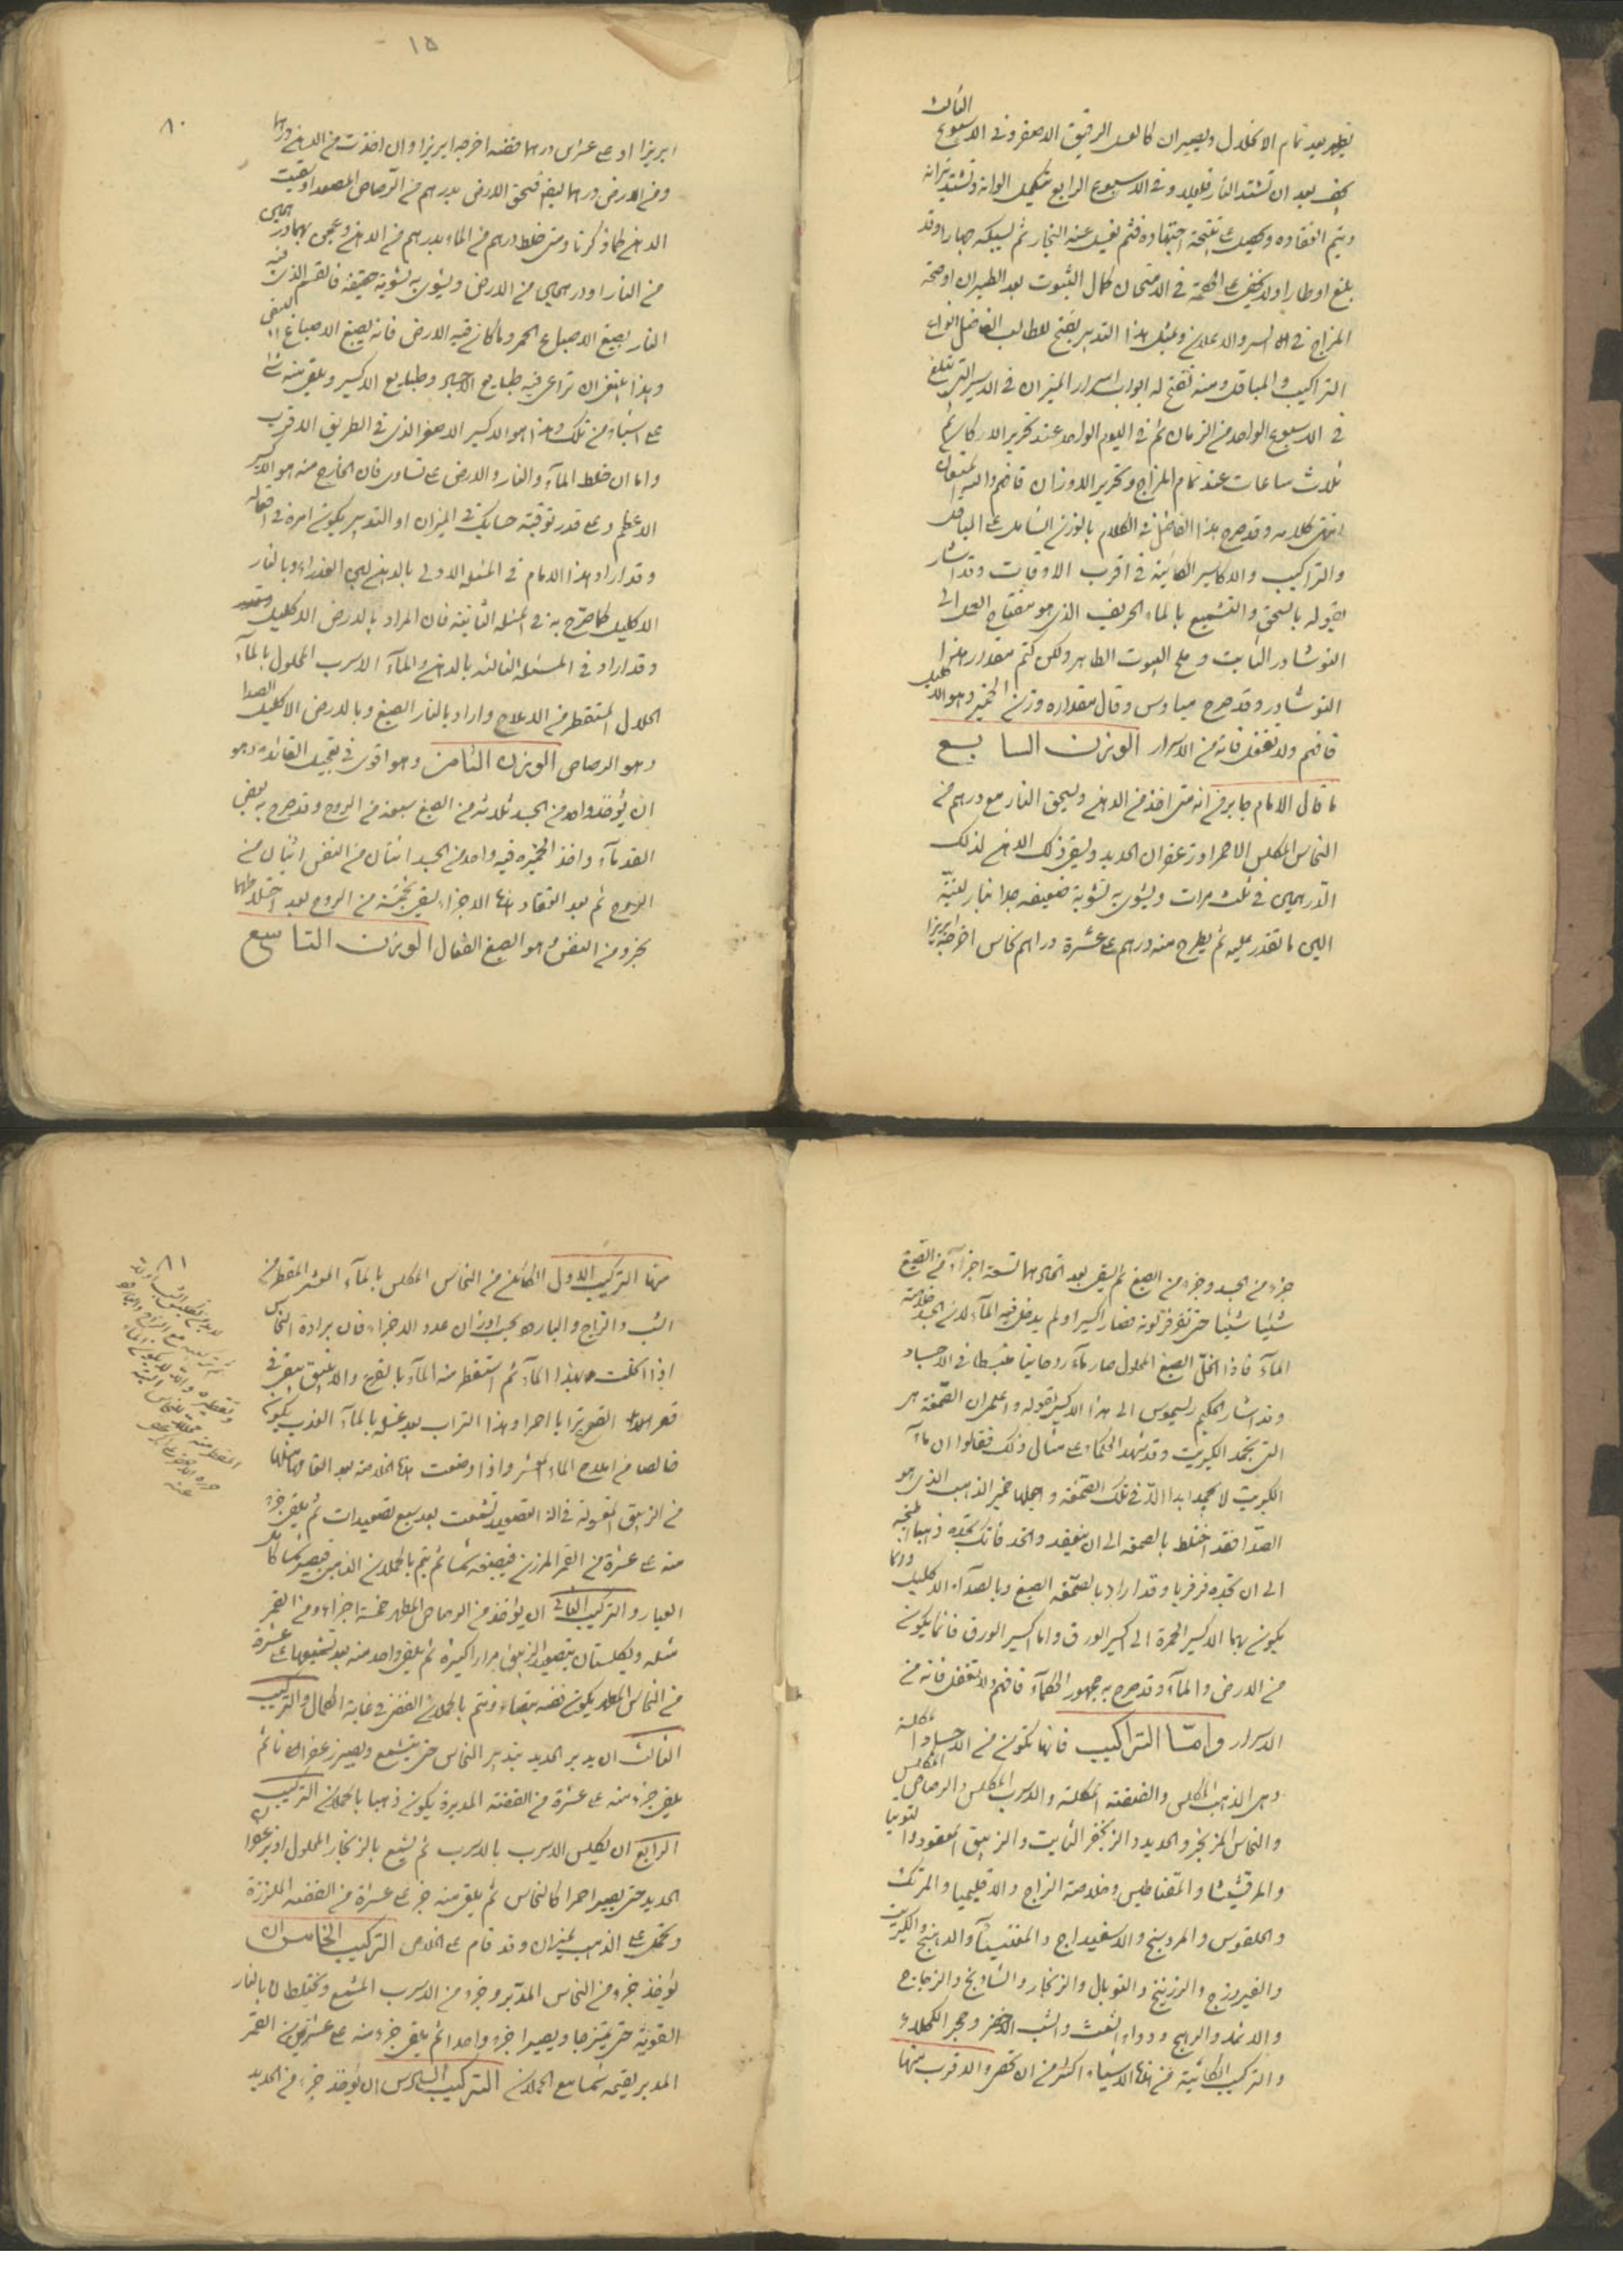 يظهر بعد تمام الانحلال ويصيران كالعسل الرقيق الاصفر وفى الاسبوع الثالث
يجف بعد ان تشتد النار قليلا وفى الاسبوع الرابع تتكمل الوانه وتشتد نيرانه
ويتم انعقاده
بلغ اوطار اولا يخفى على الحكمة فى الامتحان كمال الثبوت بعد الطيران او صحة
المزاج فى السر والاعلان وبمثل هذا التدبير يفتح للطالب الفاضل ابواب
التراكيب والمياقل ومنه تفتح له ابواب اسرار الميزان فى الاسير التى تبلغ
فى الاسبوع الواحد من الزمان ثم فى اليوم الواحد عند تحرير الاركان ثم
ثلاث ساعات عند تمام المزاج وتحرير الاوزان فافهم والله المستعان
انتهى كلامه وقد صرح هذا الفاضل فى الكلام بالوزن الشامل على
والتراكيب والاكاسير الكاينة فى اقرب الاوقات وقد اشار
بقوله بالسحق والتشميع بالماء الحريف الذى هو مفتاح العمل الى
النوشادر الثابت وملح البوت الظاهر ولكن كتم مقدار هذا
النوشادر وقد صرح مياوس وقال مقداره وزن الخمير وهو الاكليل
فافهم ولا تغفل فانه من الاسرار الوزن السابع
ما قال الامام جابر من انه متى اخذ من الدهن وسحق النار مع درهم من
النحاس المكلس الاحمر او زعفران الحديد وسقى ذلك الدهن لذلك
الدرهمين فى ثلث مرات ويشوى به تشوية ضعيفه جدا بنار لينة
التى ما تقدر عليه ثم يطرح منه درهم على عشرة دراهم نحاس اخرجه ابريزا
١٥
٨٠
ابريزا او على عشرين درهما فضه اخرجه ابريزا وان اخذت من الدهن درهما
ومن الارض درهما يضه فسحق الارض بدرهم من الرصاص المصعد او سقيت
الدهن كما ذكرنا ومتى خلط درهم من الماء بدرهم من الدهن وعجن بهما درهمين
من النار او درهمين من الارض ويشوى به تشوية خفيفه فالقسم الذى فيه
النار يصبغ الاصباغ الحمر وما كان فيه الارض فانه يصبغ الاصباغ البيض
وهذا يتفق ان تراعى فيه طبايع الاجساد وطبايع الاكسير ويلقى منه شئ
على اشياء من تلك وهذا هو الاكسير الاصغر الذى فى الطريق الاقرب
واما ان خلط الماء والنار والارض على تساوى فان الخارج منه هو الاكسير
الاعظم وعلى قدر توفيته حسابك فى الميزان او التدبير يكون امره فى افعاله
وقد اراد هذا الامام فى المسئله الاولى بالدهن لبن العذراء وبالنار
الاكليل كما صرح به فى المسئله الثانية فان المراد بالارض الاكليل
وقد اراد فى المسئله الثالثه بالدهن والماء الاسرب المحلول بالماء
الحلال المستقطر من الاملاح واراد بالنار الصبغ وبالارض الاكليل الصدا
وهو الرصاص الوزن الثامن وهو اقوى فى تعجيل الفائده وهو
ان يؤخذ واحد من الجسد ثلاثه من الصبغ سبعه من الروح وقد صرح به بعض
القدماء واخذ الخميره فيه واحد من الجسد اثنان من النفس اثنان من
الروح ثم بعد انعقاد هذه الاجزاء يسقى بخمسة من الروح بعد اختلاطهما
بجزو من النفس وهو الصبغ الفعال الوزن التاسع
جزء من الجسد وجزء من الصبغ ثم يسقى بعد اتحادهما تسعة اجزاء من الصبغ
شيئا شيئا حتى تفرفر لونه فصار اكسيرا ولم يدخل فيه الماء لان الجسد خلاصة
الماء فاذا انحل الصبغ المحلول صار ماء روحانيا منبسطا فى الاجساد
وقد اشار الحكيم رسيموس الى هذا الاكسير بقوله واعلم ان الصمغة هى
التى تجمد الكبريت وقد شهد الحكما على مثال ذلك فقالوا ان ماء
الكبريت لا يجمد ابدا الا فى تلك الصمغه واجعلها خمير الذهب الذى هو
الصدا فقد اختلط بالصمغه الى ان ينعقد واتحد فانك تجده ذهبا
الى ان تجده فرفريا وقد اراد بالصمغه الصبغ وبالصداء الاكليل وربما
يكون بهما الاكسير الحمرة الى اكسير الورق واما اكسير الورق فانما يكون
من الارض والماء وقد صرح به جمهور الحكماء فافهم ولا تغفل فانه من
الاسرار واما التراكيب فانها تكون من الاجساد المكلسة
وهى الذهب المكلس والفضة المكلسة والاسرب المكلس والرصاص المكلس
والنحاس المزنجر والحديد والزنجفر الثابت والزيبق المعقود والتوتيا
والمرقشيثا والمقناطيس وخلاصة الزاج والاقليميا والمرتك
والقلقوس والمردسنج والاسفيداج والمغنيسيا والدهنج والكبريت
والفيروزج والزرنيخ والتوبال والزنجار والشادنج والزجاج
والاثمد والرهج ودواء الشعث والشب الاحمر وحجر الكحلاء
والتراكيب الكائنة من هذه الاشياء اكثر من ان تحصر والاقرب منها
٨١
منها التركيب الاول الكائن من النحاس المكلس بالماء المعشر المقطر من
الشب والزاج والبارود بحسب اوزان عدد الاجزاء فان برادة النحاس
اذا اكلت بهذا الماء ثم استقطر منه الماء بالقرع والانبيق يبقى فى
قعر القرع ترابا احمر وهذا التراب بعد غسله بالماء العذب يكون
خالصا من املاح الماء المعشر واذا وضعت هذه الخلاصة بعد القائها مثلها
من الزيبق المغسولة فى الة التصعيد تشمعت بعد سبع تصعيدات ثم يلقى جزء
منه على عشرة من القمر المرزن فيصبغه شمسا ثم يتم بالحملان الذهبى فيصير شمسا كامل
العيار والتركيب الثانى ان يؤخذ من الرصاص المطهر خمسة اجزاء ومن القمر
مثله ويكلسان بتصعيد الزيبق مرارا كثيرة ثم يلقى واحد منه بعد تشميعها على عشرة
من النحاس المطهر يكون فضه بيضاء ويتم بالحملان الفضى فى غاية الكمال والتركيب
الثالث ان يدبر الحديد بتدبير النحاس حتى يتشمع ويصير زعفرانا ثم
يلقى جزء منه على عشرة من الفضة المدبرة يكون ذهبا بالحملان التركيب
الرابع ان يكلس الاسرب بالاسرب ثم يشمع بالزنجار المحلول او بزعفران
الحديد حتى يصير احمرا كالنحاس ثم يلقى منه جزء على عشرة من الفضه المرززة
وتحمل على الذهب بميزان وقد قام على الخلاص التركيب الخامس ان
يؤخذ جزء من النحاس المدبر وجزء من الاسرب المشمع ويختلطان بالنار
القوية حتى يمتزجا ويصيرا جزء واحدا ثم يلقى جزء منه على عشرين من القمر
المدبر يقيمه شمسا مع الحملان التركيب السادس ان يؤخذ جزء من الحديد